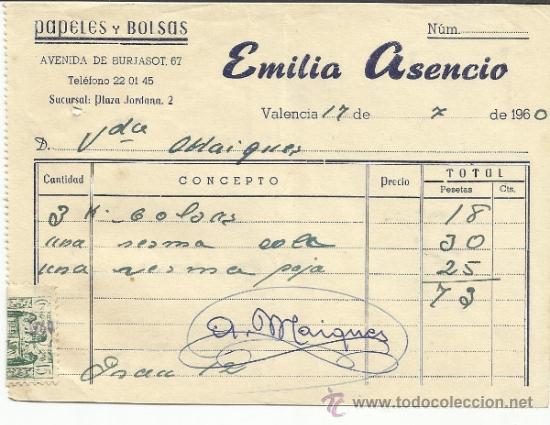 PAPELES Y BOLSAS
Núm.
AVENIDA DE BURJASOT, 67
Teléfono 22 01 45
Sucursal: Plaza Jordana, 2
Emilia Asencio
Valencia 17 de 7 de 1960
D. Vda Maiques
Cantidad CONCEPTO Precio TOTAL
Pesetas Cts.
3 K. bolsas 18
una resma cola 30
una resma paja 25
73
A. Maiques
www.todocoleccion.net